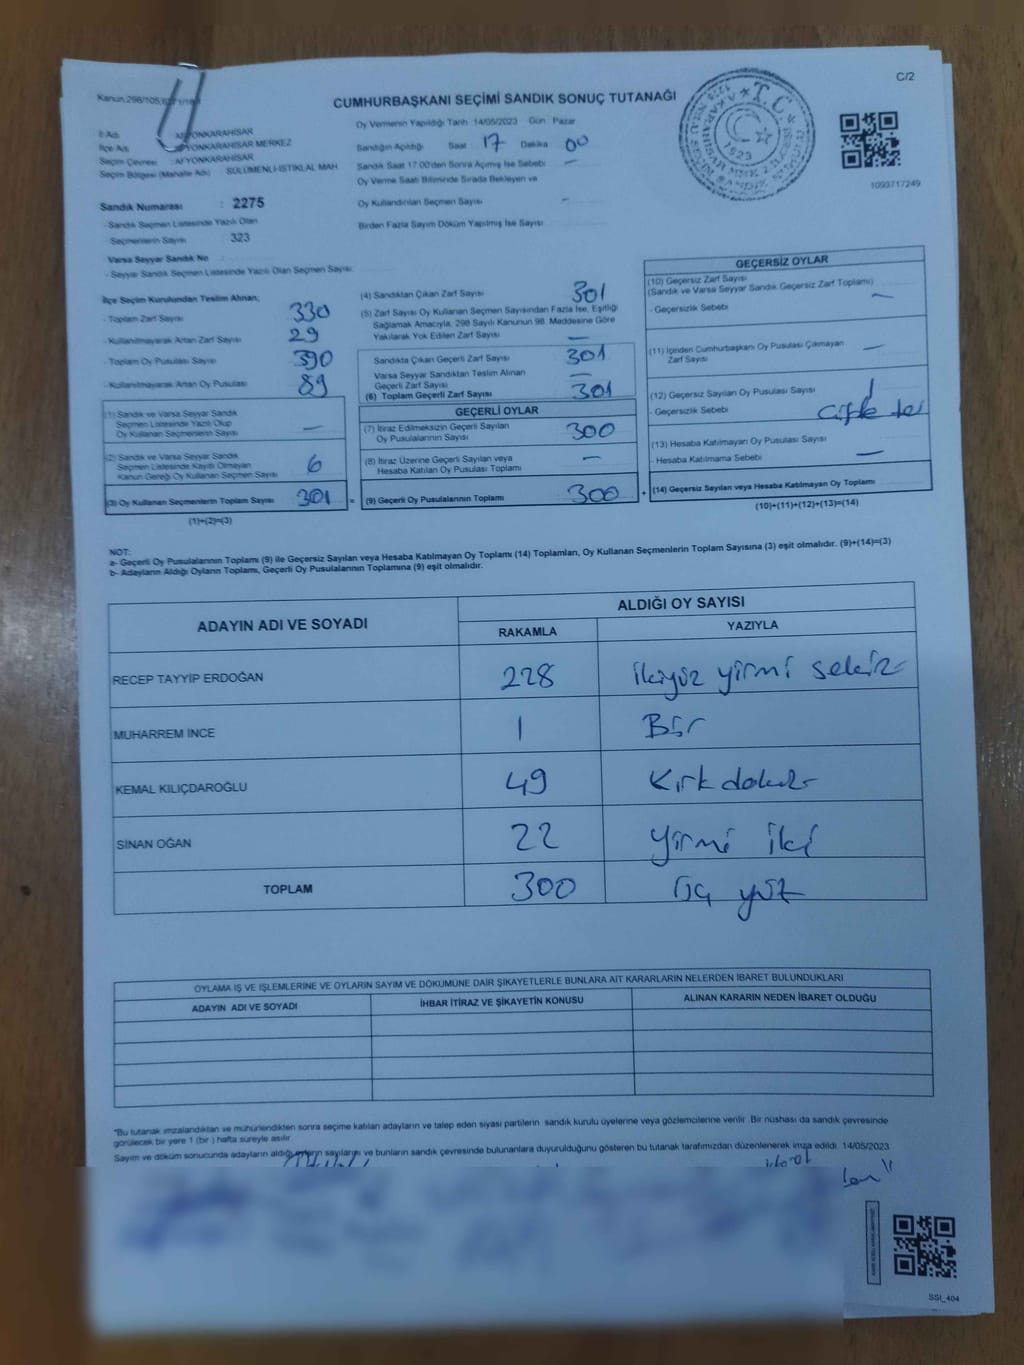 C/2
Kanun,298/105,
CUMHURBAŞKANI SEÇİMİ SANDIK SONUÇ TUTANAĞI
İl Adı AFYONKARAHİSAR
İlçe Adı AFYONKARAHİSAR MERKEZ
Seçim Çevresi : AFYONKARAHİSAR
Seçim Bölgesi (Mahalle Adı) SÜLÜMENLİ-İSTİKLAL MAH.
Sandık Numarası : 2275
- Sandık Seçmen Listesinde Yazılı Olan
Seçmenlerin Sayısı 323
- Varsa Seyyar Sandık No
- Seyyar Sandık Seçmen Listesinde Yazılı Olan Seçmen Sayısı:
Oy Vermenin Yapıldığı Tarih 14/05/2023 Gün : Pazar
Sandığın Açıldığı Saat 17 Dakika 00
Sandık Saat 17:00'den Sonra Açımış İse Sebebi —
Oy Verme Saati Bitiminde Sırada Bekleyen ve
Oy Kullandırılan Seçmen Sayısı —
Birden Fazla Sayım Döküm Yapılmış İse Sayısı
T.C.
1923
1093717249
İlçe Seçim Kurulundan Teslim Alınan;
- Toplam Zarf Sayısı 330
- Kullanılmayarak Artan Zarf Sayısı 29
- Toplam Oy Pusulası Sayısı 390
- Kullanılmayarak Artan Oy Pusulası 89
(1) Sandık ve Varsa Seyyar Sandık
Seçmen Listesinde Yazılı Olup
Oy Kullanan Seçmenlerin Sayısı —
(2) Sandık ve Varsa Seyyar Sandık
Seçmen Listesinde Kayıtlı Olmayan
Kanun Gereği Oy Kullanan Seçmen Sayısı 6
(3) Oy Kullanan Seçmenlerin Toplam Sayısı 301
(1)+(2)=(3)
(4) Sandıktan Çıkan Zarf Sayısı 301
(5) Zarf Sayısı Oy Kullanan Seçmen Sayısından Fazla İse, Eşitliği
Sağlamak Amacıyla, 298 Sayılı Kanunun 98. Maddesine Göre
Yakılarak Yok Edilen Zarf Sayısı —
Sandıkta Çıkan Geçerli Zarf Sayısı 301
Varsa Seyyar Sandıktan Teslim Alınan
Geçerli Zarf Sayısı —
(6) Toplam Geçerli Zarf Sayısı 301
GEÇERLİ OYLAR
(7) İtiraz Edilmeksizin Geçerli Sayılan
Oy Pusulalarının Sayısı 300
(8) İtiraz Üzerine Geçerli Sayılan veya
Hesaba Katılan Oy Pusulası Toplamı —
= (9) Geçerli Oy Pusulalarının Toplamı 300
GEÇERSİZ OYLAR
(10) Geçersiz Zarf Sayısı
(Sandık ve Varsa Seyyar Sandık Geçersiz Zarf Toplamı) —
- Geçersizlik Sebebi
(11) İçinden Cumhurbaşkanı Oy Pusulası Çıkmayan
Zarf Sayısı —
(12) Geçersiz Sayılan Oy Pusulası Sayısı 1
- Geçersizlik Sebebi
(13) Hesaba Katılmayan Oy Pusulası Sayısı
- Hesaba Katılmama Sebebi —
+ (14) Geçersiz Sayılan veya Hesaba Katılmayan Oy Toplamı
(10)+(11)+(12)+(13)=(14)
NOT:
a- Geçerli Oy Pusulalarının Toplamı (9) ile Geçersiz Sayılan veya Hesaba Katılmayan Oy Toplamı (14) Toplamları, Oy Kullanan Seçmenlerin Toplam Sayısına (3) eşit olmalıdır. (9)+(14)=(3)
b- Adayların Aldığı Oyların Toplamı, Geçerli Oy Pusulalarının Toplamına (9) eşit olmalıdır.
ADAYIN ADI VE SOYADI ALDIĞI OY SAYISI
RAKAMLA YAZIYLA
RECEP TAYYİP ERDOĞAN 228 ikiyüz yirmi sekiz
MUHARREM İNCE 1 Bir
KEMAL KILIÇDAROĞLU 49 Kırk dokuz
SİNAN OĞAN 22 yirmi iki
TOPLAM 300 üç yüz
OYLAMA İŞ VE İŞLEMLERİNE VE OYLARIN SAYIM VE DÖKÜMÜNE DAİR ŞİKAYETLERLE BUNLARA AİT KARARLARIN NELERDEN İBARET BULUNDUKLARI
ADAYIN ADI VE SOYADI İHBAR İTİRAZ VE ŞİKAYETİN KONUSU ALINAN KARARIN NEDEN İBARET OLDUĞU
"Bu tutanak imzalandıktan ve mühürlendikten sonra seçime katılan adayların ve talep eden siyasi partilerin sandık kurulu üyelerine veya gözlemcilerine verilir. Bir nüshası da sandık çevresinde
görülecek bir yere 1 (bir ) hafta süreyle asılır.
Sayım ve döküm sonucunda adayların aldığı oyların sayılarını ve bunların sandık çevresinde bulunanlara duyurulduğunu gösteren bu tutanak tarafımızdan düzenlenerek imza edildi. 14/05/2023
SSİ_404